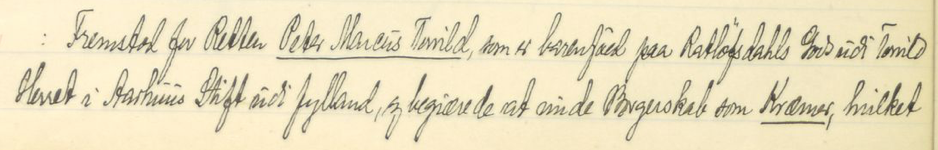 : Fremstod for Retten Peter Marcus Torrild, som er baarenfåed paa Ratløfsdahls Gods udi Torrild
Herret i Aarhuus Stift udi Jylland, og begiærede at vinde Borgerskab som Kræmer, hvilket